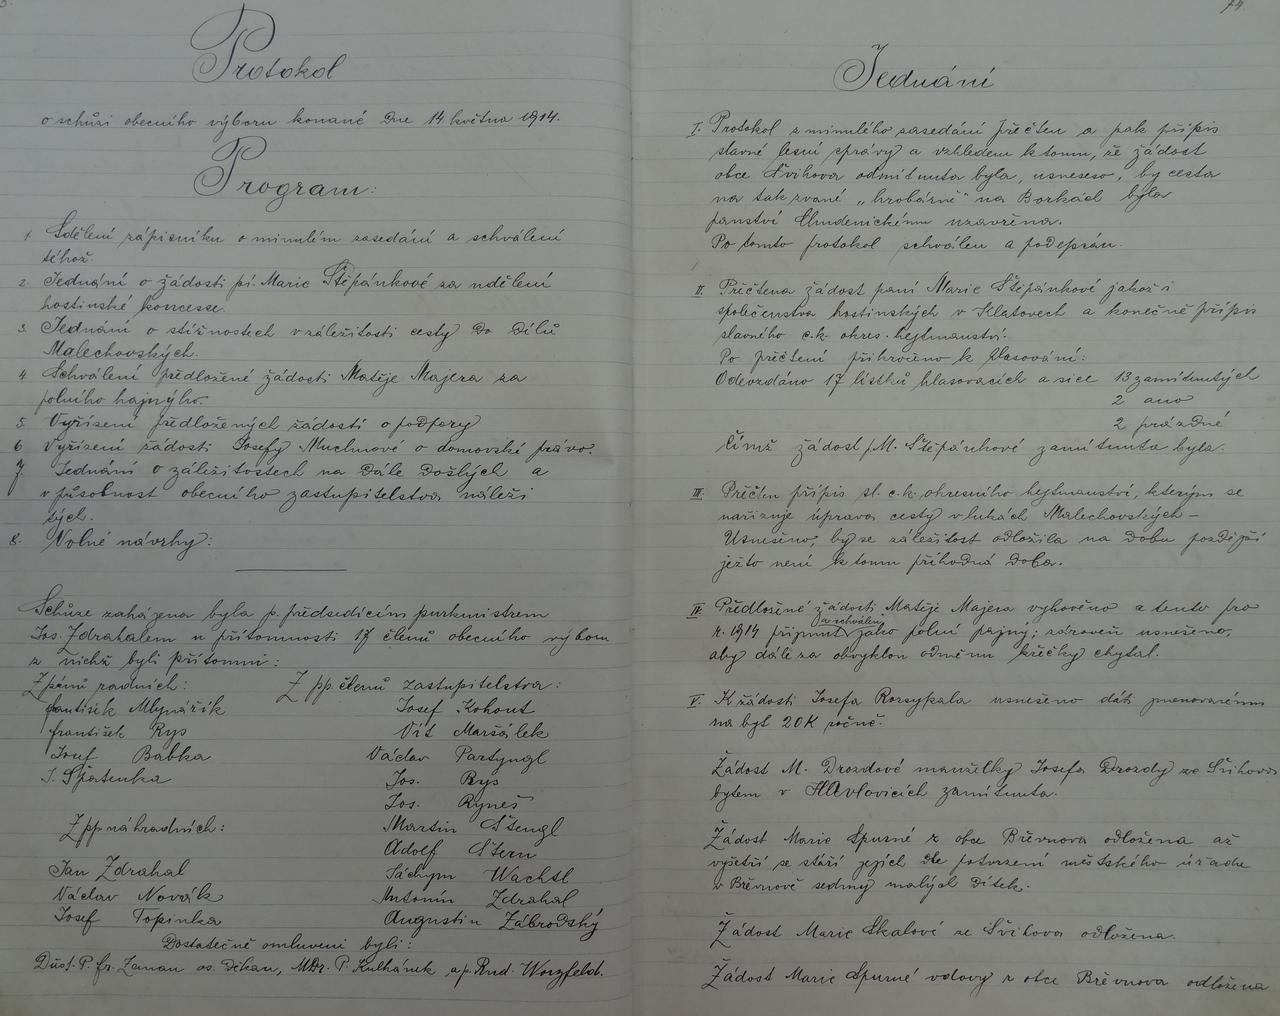 Protokol
o schůzi obecního výboru konané dne 14. května 1914.
Program:
1. Sdělení zápisníku o minulém zasedání a schválení
téhož.
2. Jednání o žádosti pí. Marie Štěpánkové za udělení
hostinské koncesse.
3. Jednání o stížnostech v záležitosti cesty do Dílů
Malechovských.
4 Schválení předložené žádosti Matěje Majera za
polního hajného.
5. Vyřízení předložených žádostí o podpory
6 Vyřízení žádosti Josefy Muchnové o domovské právo.
7. Jednání o záležitostech na dále došlých a
v působnost obecního zastupitelstva náleži
tých.
8. Volné návrhy:
Schůze zahájena byla p. předsedícím purkmistrem
Jos. Zdrahalem u přítomnosti 17 členů obecního výboru
z nichž byli přítomni:
Z pánů radních:
František Mlynařík
František Rys
Josef Babka
J. Špatenka
Z pp. náhradních:
Jan Zdrahal
Václav Novák
Josef Topinka
Z pp. členů zastupitelstva:
Josef Kohout
Vít Maršálek
Václav Partyngl
Jos. Rys
Jos. Ryneš
Martin Štengl
Adolf Stern
Jáchym Wachtl
Antonín Zdrahal
Augustin Zábrodský
Dostatečně omluveni byli:
Důst. P. Fr. Zeman os. děkan, MDr. P. Kulhánek, a p. Rud.
74.
Jednání
I. Protokol z minulého zasedání přečten a pak přípis
slavné lesní správy a vzhledem k tomu, že žádost
obce Švihova odmítnuta byla, usneseso, by cesta
na tak zvané „hrobárně" na Borkách byla
panství Chudenickému uzavřena.
Po tomto protokol schválen a podepsán.
II. Přečtena žádost paní Marie Štěpánkové jakož i
společenstva hostinských v Klatovech a konečně přípis
slavného c.k. okres. hejtmanství.
Po přečtení přikročeno k hlasování:
Odevzdáno 17 lístků hlasovacích a sice 13 zamítnutých
2 ano
2 prázdné
čímž žádost M. Štěpánkové zamítnuta byla.
III. Přečten přípis sl. c.k. okresního hejtmanství, kterým se
nařizuje úprava cesty v lukách Malechovských –
Usneseno, by se záležitost odložila na dobu pozdější
ježto není k tomu příhodná doba.
IV. Předložené žádosti Matěje Majera vyhověno a tento pro
r. 1914 přijmut a schválen jako polní hajný; zároveň usneseno,
aby dále za obvyklou odměnu křečky chytal.
V. K žádosti Josefa Rozsypala usneseno dáti jmenovanému
na byt 20 K ročně.
Žádost M. Drozdové manželky Josefa Drozdy ze Švihova
bytem v Havlovicích zamítnuta.
Žádost Marie Spurné z obce Břevnova odložena až
vyšetří se stáří jejích dle potvrzení městského úřadu
v Břevnově sedmy malých dítek.
Žádost Marie Skalové ze Švihova odložena.
Žádost Marie Spurné vdovy z obce Břevnova odložena